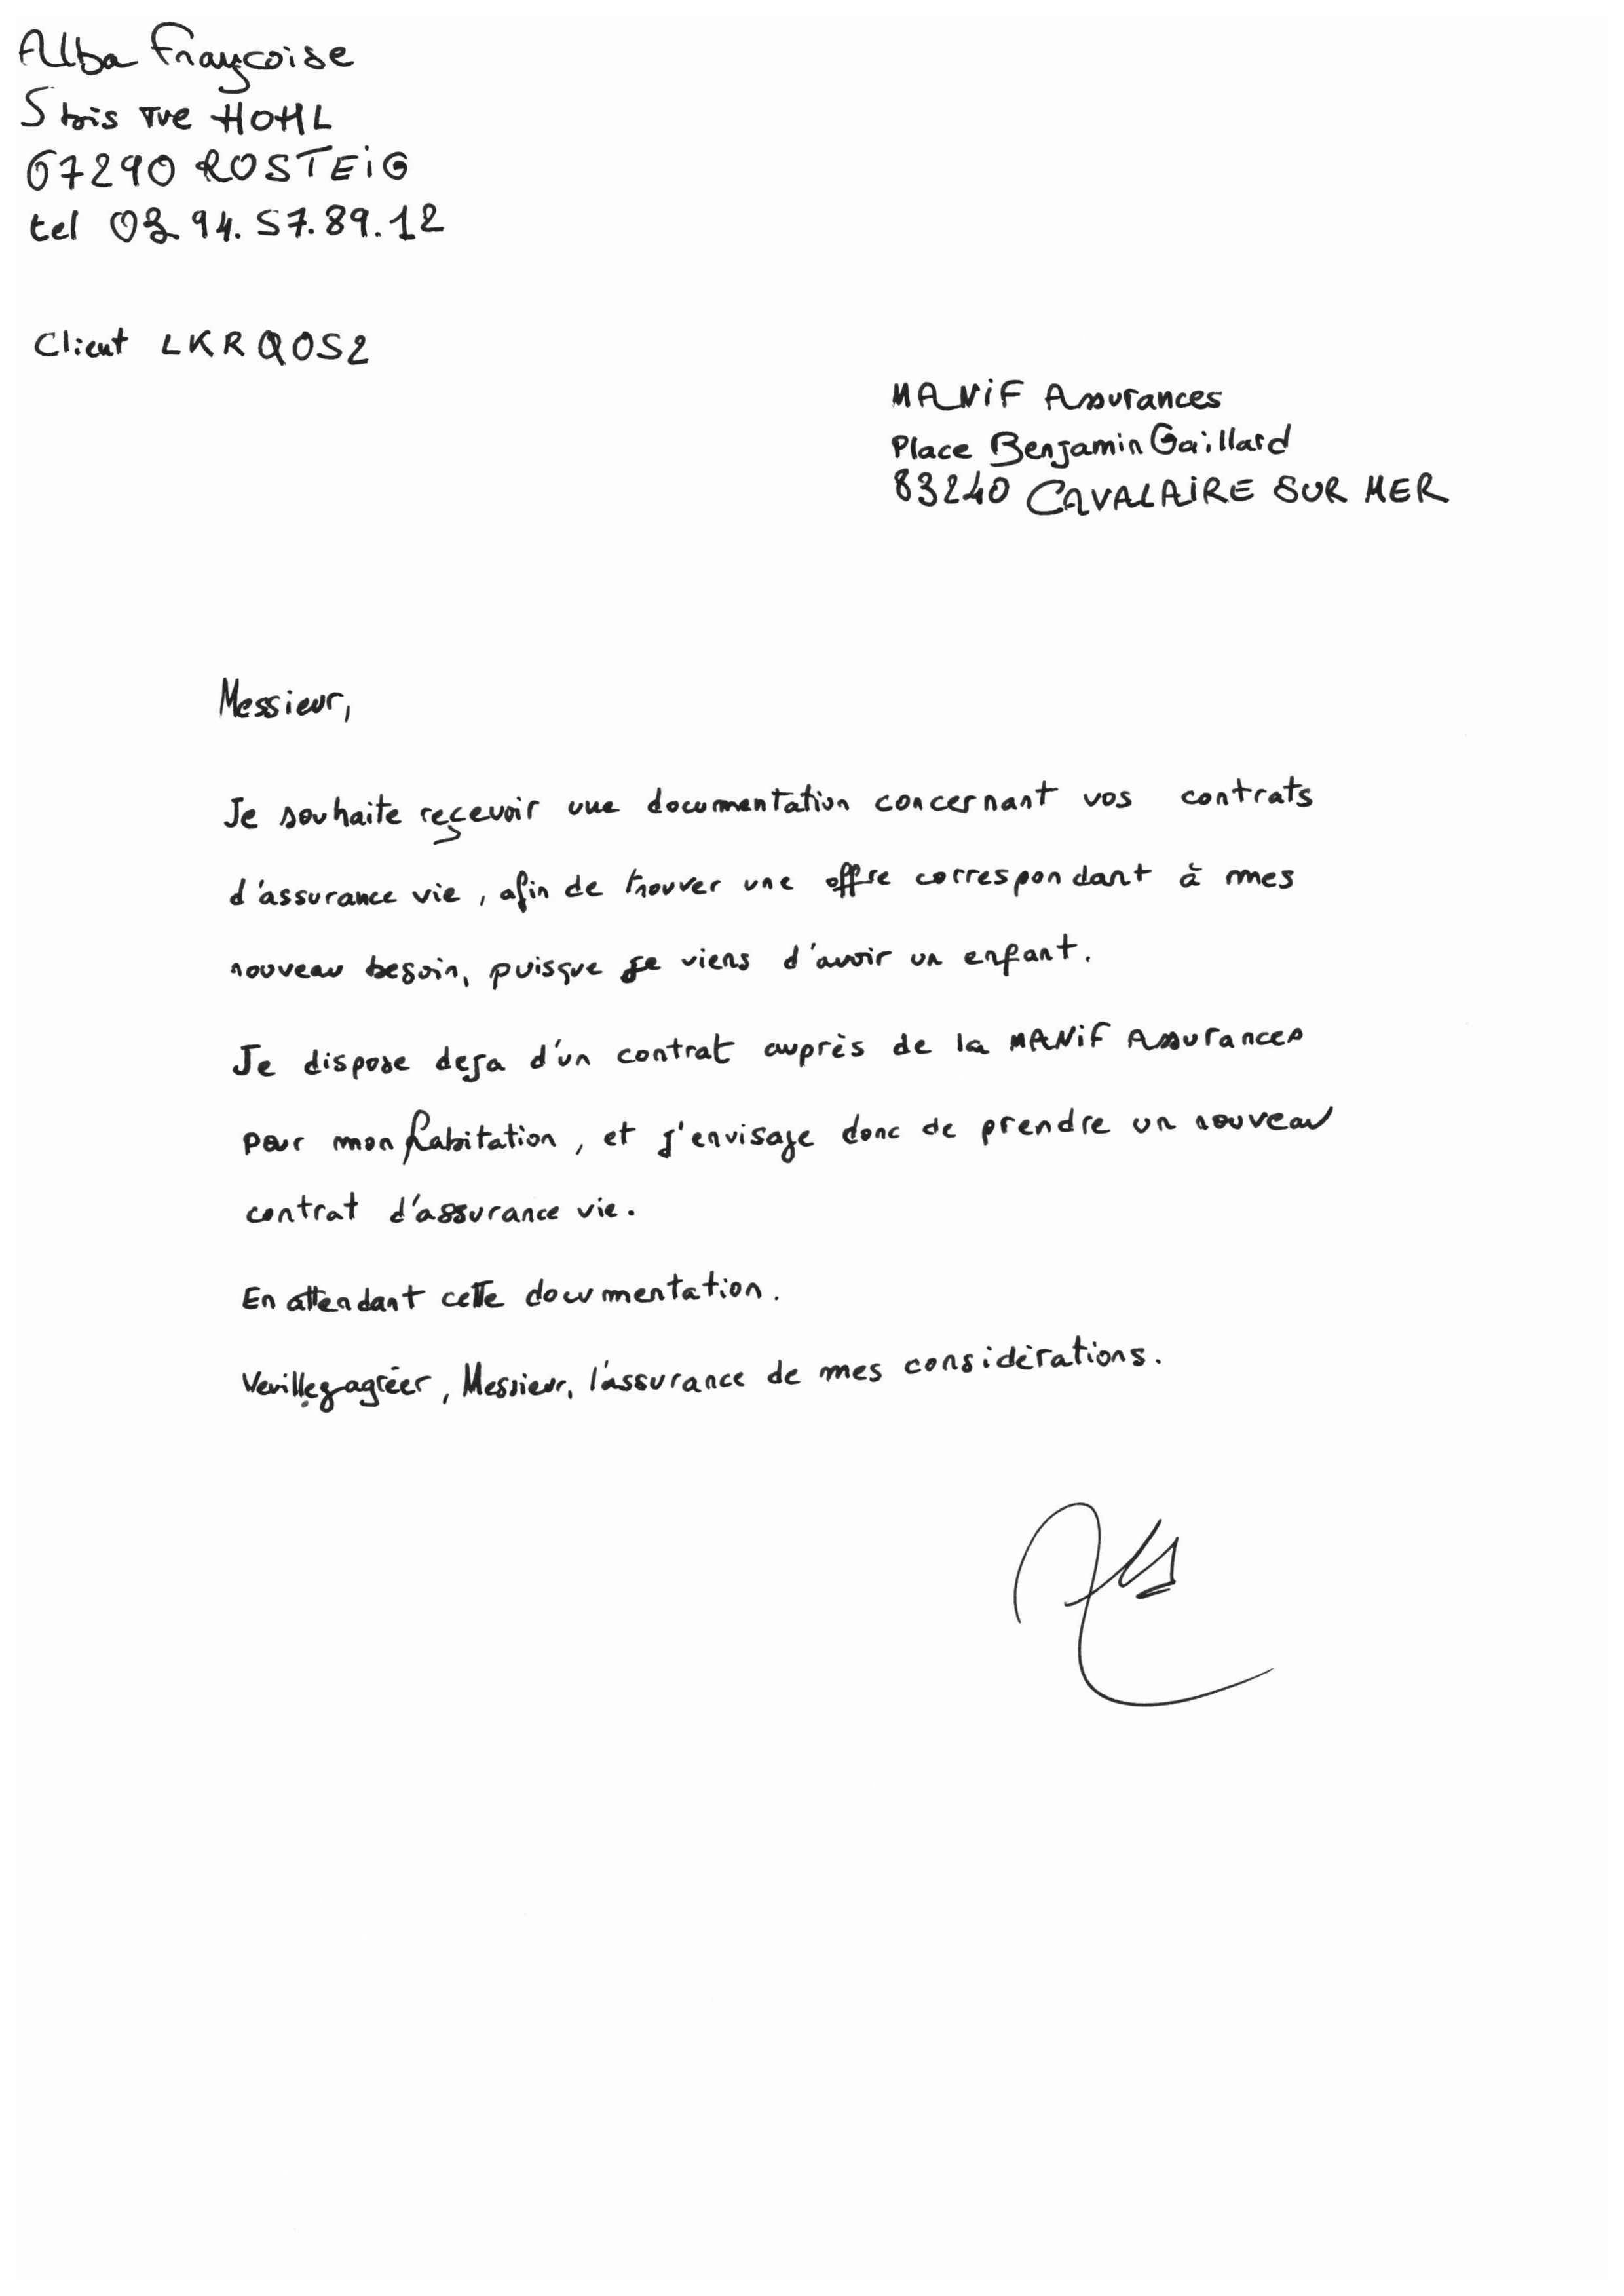 Alba Françoise
5 bis rue HOHL
67290 ROSTEIG
tel 03 94.57.89.12
Client LKRQOS2
MANiF Assurances
Place Benjamin Gaillard
83240 CAVALAIRE SUR MER
Messieur,
Je souhaite reçevoir une documentation concernant vos contrats
d'assurance vie, afin de trouver une offre correspondant à mes
nouveau besoin, puisque je viens d'avoir un enfant.
Je dispose deja d'un contrat auprès de la MANiF Assurances
pour mon habitation, et j'envisage donc de prendre un nouveau
contrat d'assurance vie.
En attendant cette documentation.
Veuillez agréer, Messieur, l'assurance de mes considérations.